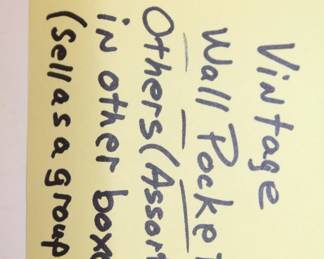 Vintage
Wall Pocket
Others (Assor
in other boxe
(Sell as a group